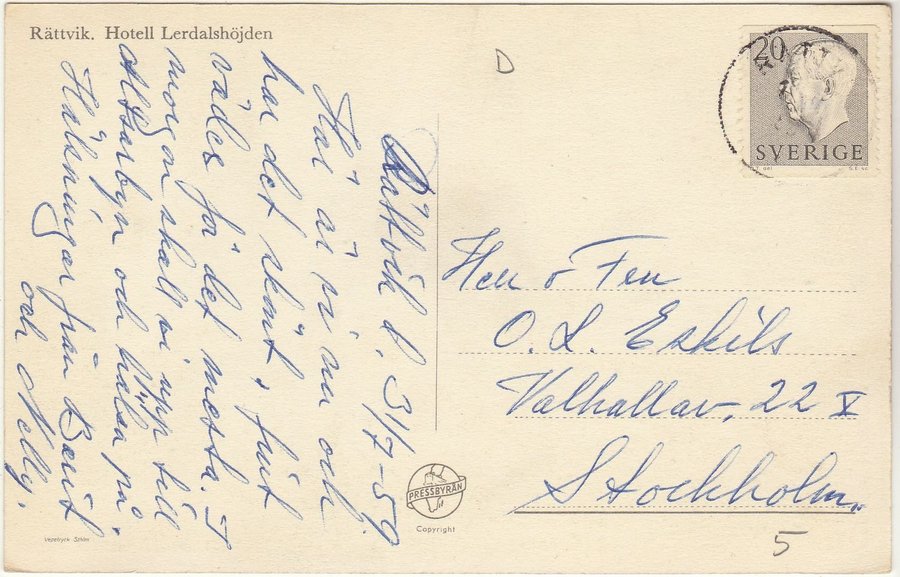 Rättvik. Hotell Lerdalshöjden
D
20
SVERIGE
Rättvik d. 31/7-59.
Här är vi nu och
har det skönt, fint
väder för det mesta. I
morgon skall vi upp till
Alftarbyn och hälsa på.
Hälsningar från Berit
och Nelly.
Herr o Fru
O. L. Eskils
Valhallav. 22 V
Stockholm
PRESSBYRÅN
Copyright
5